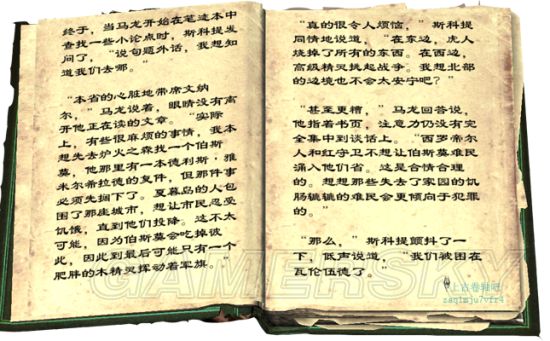 终于，当马龙开始在笔迹本中
查找一些小论点时，斯科提发
问了，“说句题外话，我想知
道我们去哪。”
“本省的心脏地带席文纳
尔，”马龙说着，眼睛没有离
开他正在读的文章。“实际
上，有些很麻烦的事情，我本
想先去炉火之森找一个伯斯
莫，他那里有一本德利斯·雅
米尔希拉德的复件，但那件事
必须先搁下了。夏暮岛的人包
围了那座城市，想让市民忍受
饥饿，直到他们投降。这不太
可能，因为伯斯莫会吃掉彼
此，因此到最后可能只有一个
肥胖的木精灵挥动着军旗。”
“真的很令人烦恼，”斯科提
同情地说道，“在东边，虎人
烧掉了所有的东西。在西边，
高级精灵挑起战争。我想北部
的边境也不会太安宁吧？”
“甚至更糟，”马龙回答说，
他指着书页，注意力仍没有完
全集中到谈话上。“西罗帝尔
人和红守卫不想让伯斯莫难民
涌入他们省。这是合情合理
的。想想那些失去了家园的饥
肠辘辘的难民会更倾向于犯罪
的。”
“那么，”斯科提颤抖了一
下，低声说道，“我们被困在
瓦伦伍德了。”
上古卷轴吧
zaqimju7vfr4
GAMERSKY